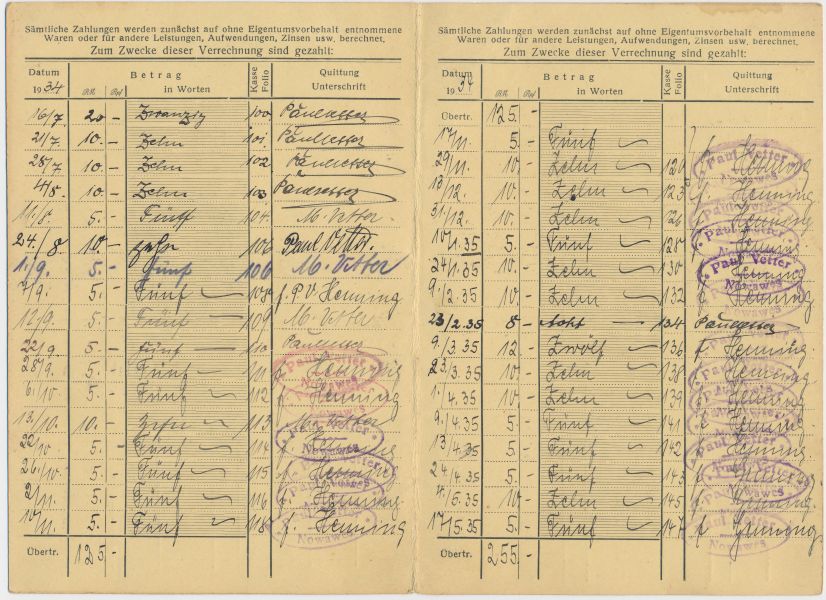 Sämtliche Zahlungen werden zunächst auf ohne Eigentumsvorbehalt entnommene
Waren oder für andere Leistungen, Aufwendungen, Zinsen usw. berechnet.
Zum Zwecke dieser Verrechnung sind gezahlt:
Datum Betrag Kasse Quittung
1934 RM Pf in Worten Folio Unterschrift
16/7 20 - Zwanzig 100.
21/7 10. - Zehn 101.
28/7 10. - Zehn 102.
4/8 10. - Zehn 103.
11./8. 5. - Fünf 104. M. Vetter
24./8 10 - zehn 106 Paul Vetter.
1./9. 5. - Fünf 106 M. Vetter
5. - Fünf 108 f. P. V. Henning
12/9. 5. - Fünf 109 M. Vetter
22/9. 5. - Fünf 110
28/9. 5. - Fünf 111 f. Henning
6./10. 5. - Fünf 112 f. Henning
13./10. 10. - Zehn 113
22/10 5. - Fünf 114
26./10. 5. - Fünf 115 f. Henning
2/11. 5. - Fünf 116 f. Henning
10/11. 5. - Fünf 118 f. Henning
Paul Vetter
Nowawes
Übertr. 125.-
Sämtliche Zahlungen werden zunächst auf ohne Eigentumsvorbehalt entnommene
Waren oder für andere Leistungen, Aufwendungen, Zinsen usw. berechnet.
Zum Zwecke dieser Verrechnung sind gezahlt:
Datum Betrag Kasse Quittung
1934 RM Pf in Worten Folio Unterschrift
Übertr. 125. -
17/11. 5. - Fünf
29/11. 10. - Zehn 120 f. Henning
13/12. 10. - Zehn 123 f. Henning
31/12. 10. - Zehn 126 f. Henning
10/1.35 5. - Fünf 128 f. Henning
24/1.35 10. - Zehn 130 f. Henning
9./2.35 10. - Zehn 132 f. Henning
23/2.35 8 - Acht 134
9./3.35 12. - Zwölf 136 f. Henning
23/3.35 10. - Zehn 138 f. Henning
1./4.35 10. - Zehn 139 f. Henning
9./4.35 5. - Fünf 141 f. Henning
13/4.35 5. - Fünf 142 f. Henning
24/4.35 5. - Fünf 143 f. Henning
4./5.35 10. - Zehn 145 f. Henning
17/5.35 5. - Fünf 147 f. Henning
Paul Vetter
Nowawes
Übertr. 255.-